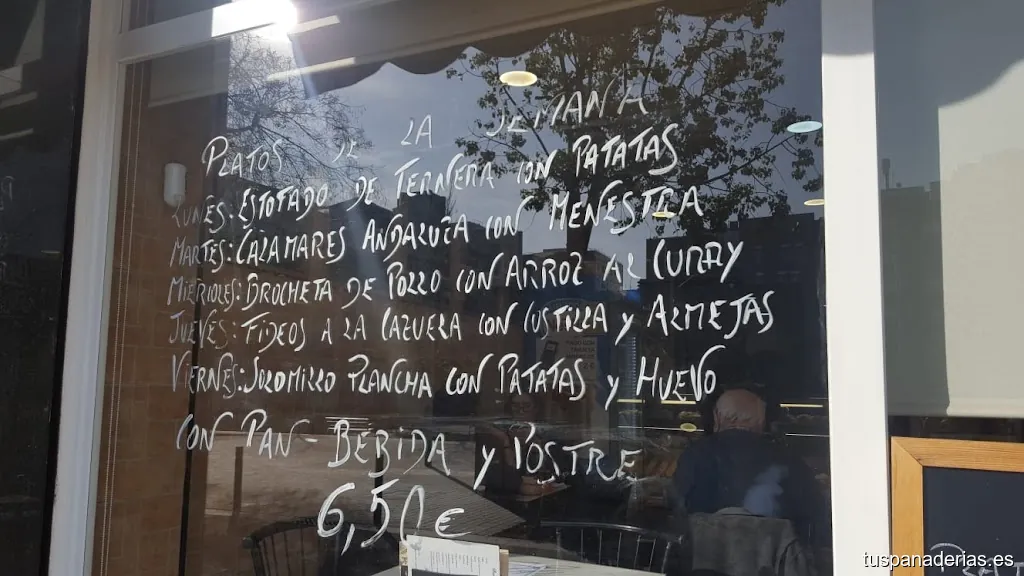 PLATOS DE LA SEMANA
LUNES: ESTOFADO DE TERNERA CON PATATAS
MARTES: CALAMARES ANDALUZA CON MENESTRA
MIERCOLES: BROCHETA DE POLLO CON ARROZ AL CURRY
JUEVES: FIDEOS A LA CAZUELA CON COSTILLA Y ALMEJAS
VIERNES: SOLOMILLO PLANCHA CON PATATAS Y HUEVO
CON PAN BEBIDA Y POSTRE
6,50 €
tuspanaderias.es